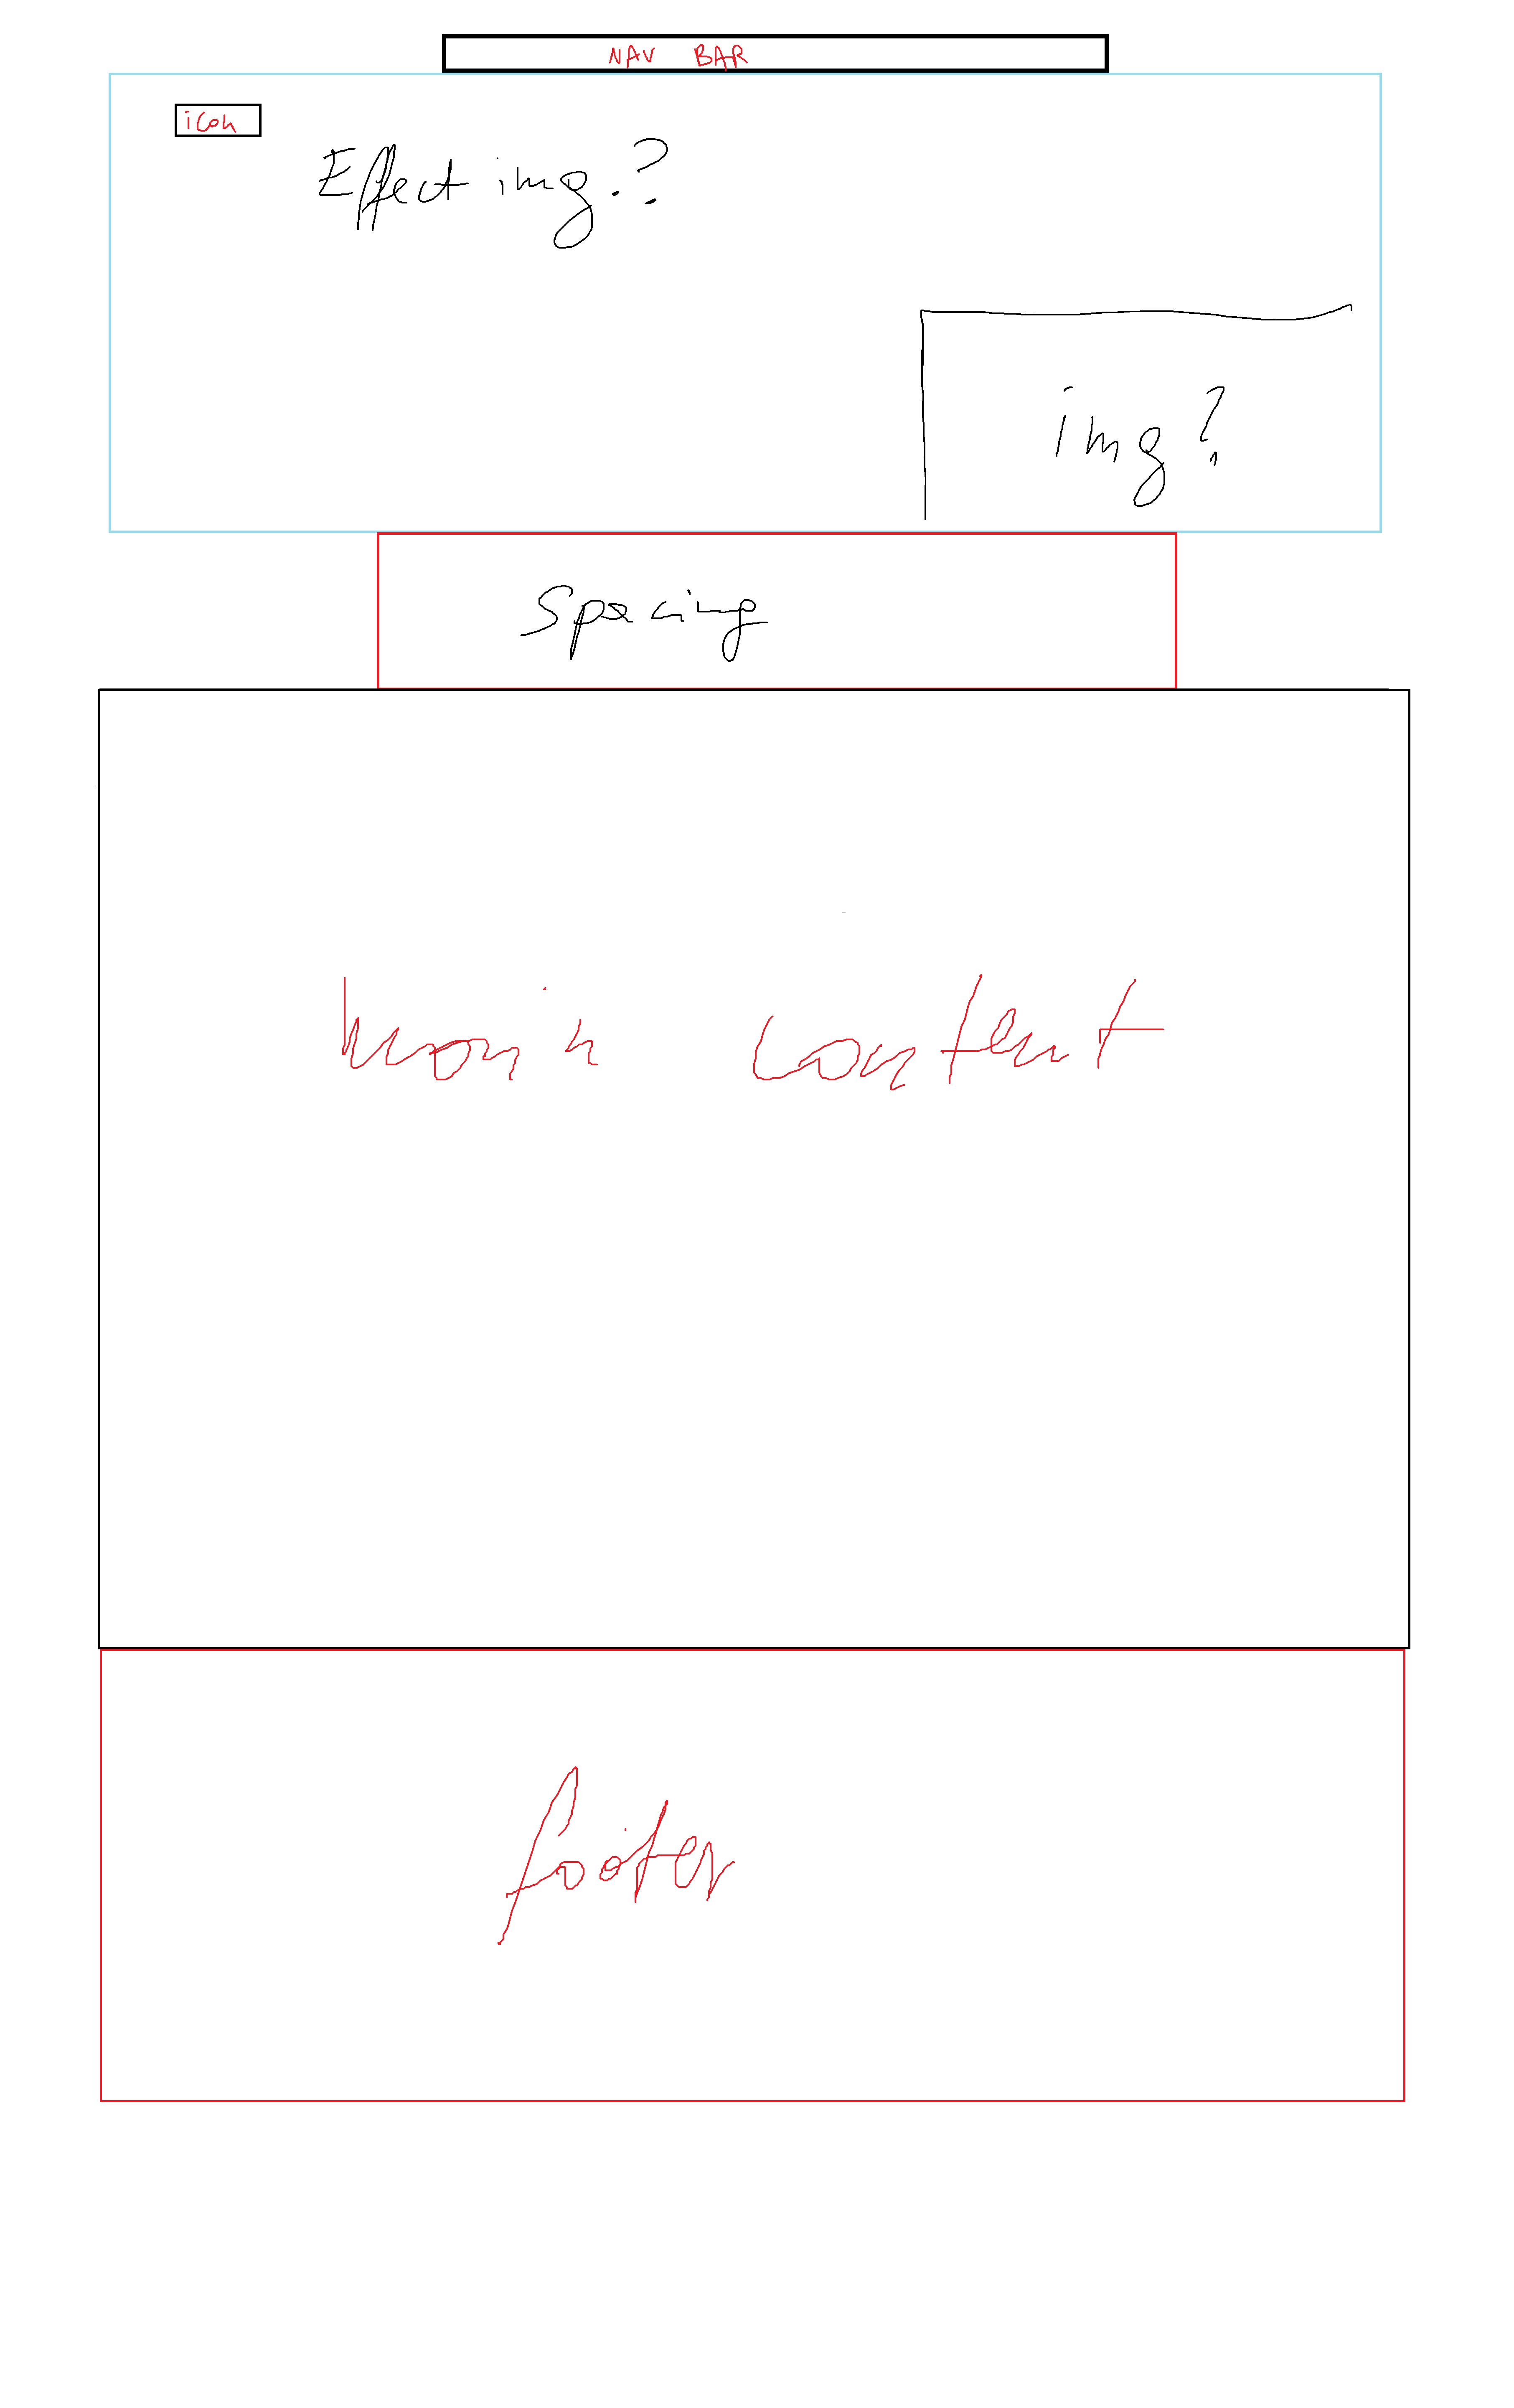 NAV BAR
icon
Effect img.?
img?
Spacing
main content
footer